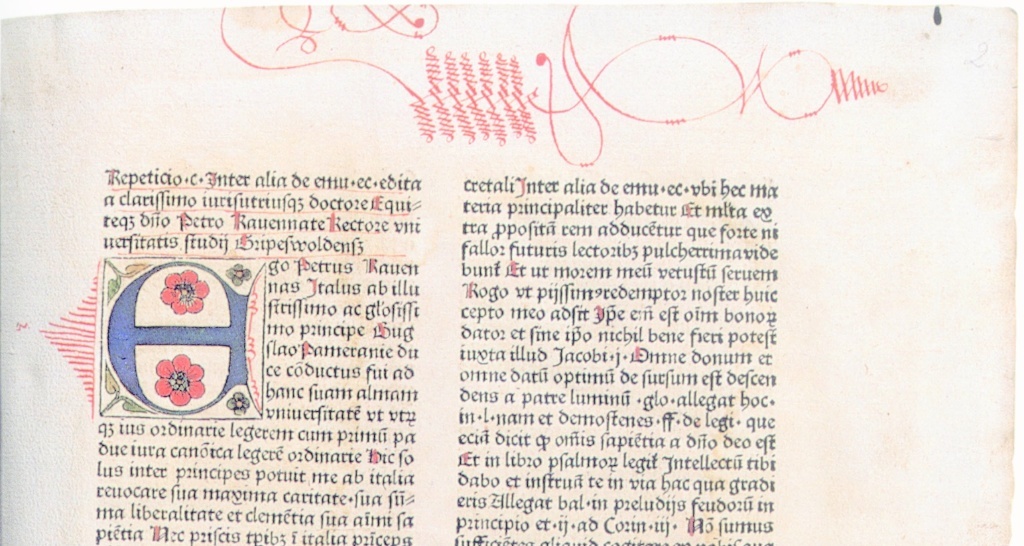 Repeticio·c·Inter alia de emu·ec·edita
a clarissimo iurisutriusqȝ doctore Equi-
teqȝ dño Petro Rauennate Rectore vni
uersitatis studij Gripeswoldensȝ
Ego Petrus Rauen
nas Italus ab illu
strissimo ac glosissi
mo principe Bug
slao Pameranie du
ce cōductus fui ad
hanc suam almam
vniuersitatē vt vtrꝝ
qȝ ius ordinarie legerem cum primū pa
due iura canōica legerē ordinarie Hic so
lus inter principes potuit me ab italia
reuocare sua maxima caritate·sua sūm-
ma liberalitate et clemētia sua aīmi sa
piētia Nec priscis tpibȝ ī italia prīceps
cretali Inter alia de emu·ec·vbi hec ma
teria principaliter habetur Et mlta ex
tra ꝓpositā rem adducētur que forte ni
fallor futuris lectoribȝ pulcherrima vide
bunt Et ut morem meū vetustū seruem
Rogo vt pijssimꝰ redemptor noster huic
cepto meo adsit Ip̄e em̄ est oīm bonoꝝ
dator et sine ip̄o nichil bene fieri potest
iuxta illud Jacobi·j·Omne donum et
omne datū optimū de sursum est descen
dens a patre luminū·glo·allegat hoc·
in·l·nam et demostenes·ff·de legi·que
eciā dicit ꝙ om̄is sapiētia a dño deo est
Et in libro psalmoꝝ legit̄ Intellectū tibi
dabo et instruā te in via hac qua gradi
eris Allegat bal·in preludijs feudorū in
principio et·ij·ad Corin·iij·Nō sumus
sufficiētes aliquid cogitare
2